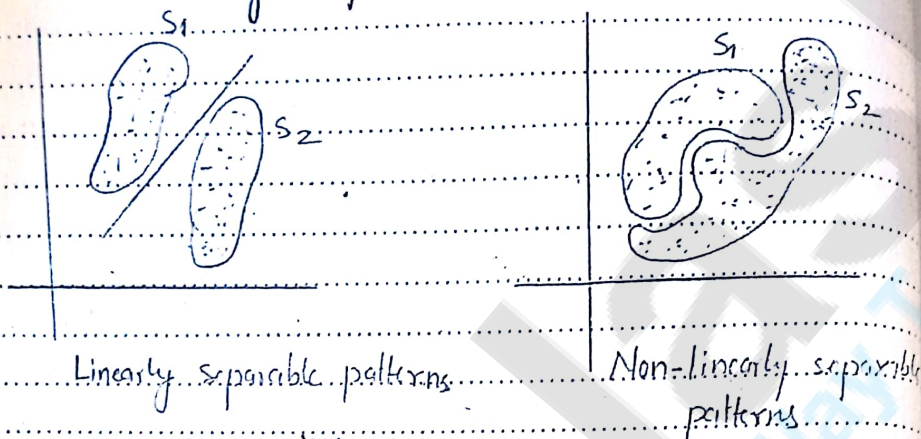 S1
S2
S1
S2
Linearly separable patterns
Non-linearly separabl
patterns